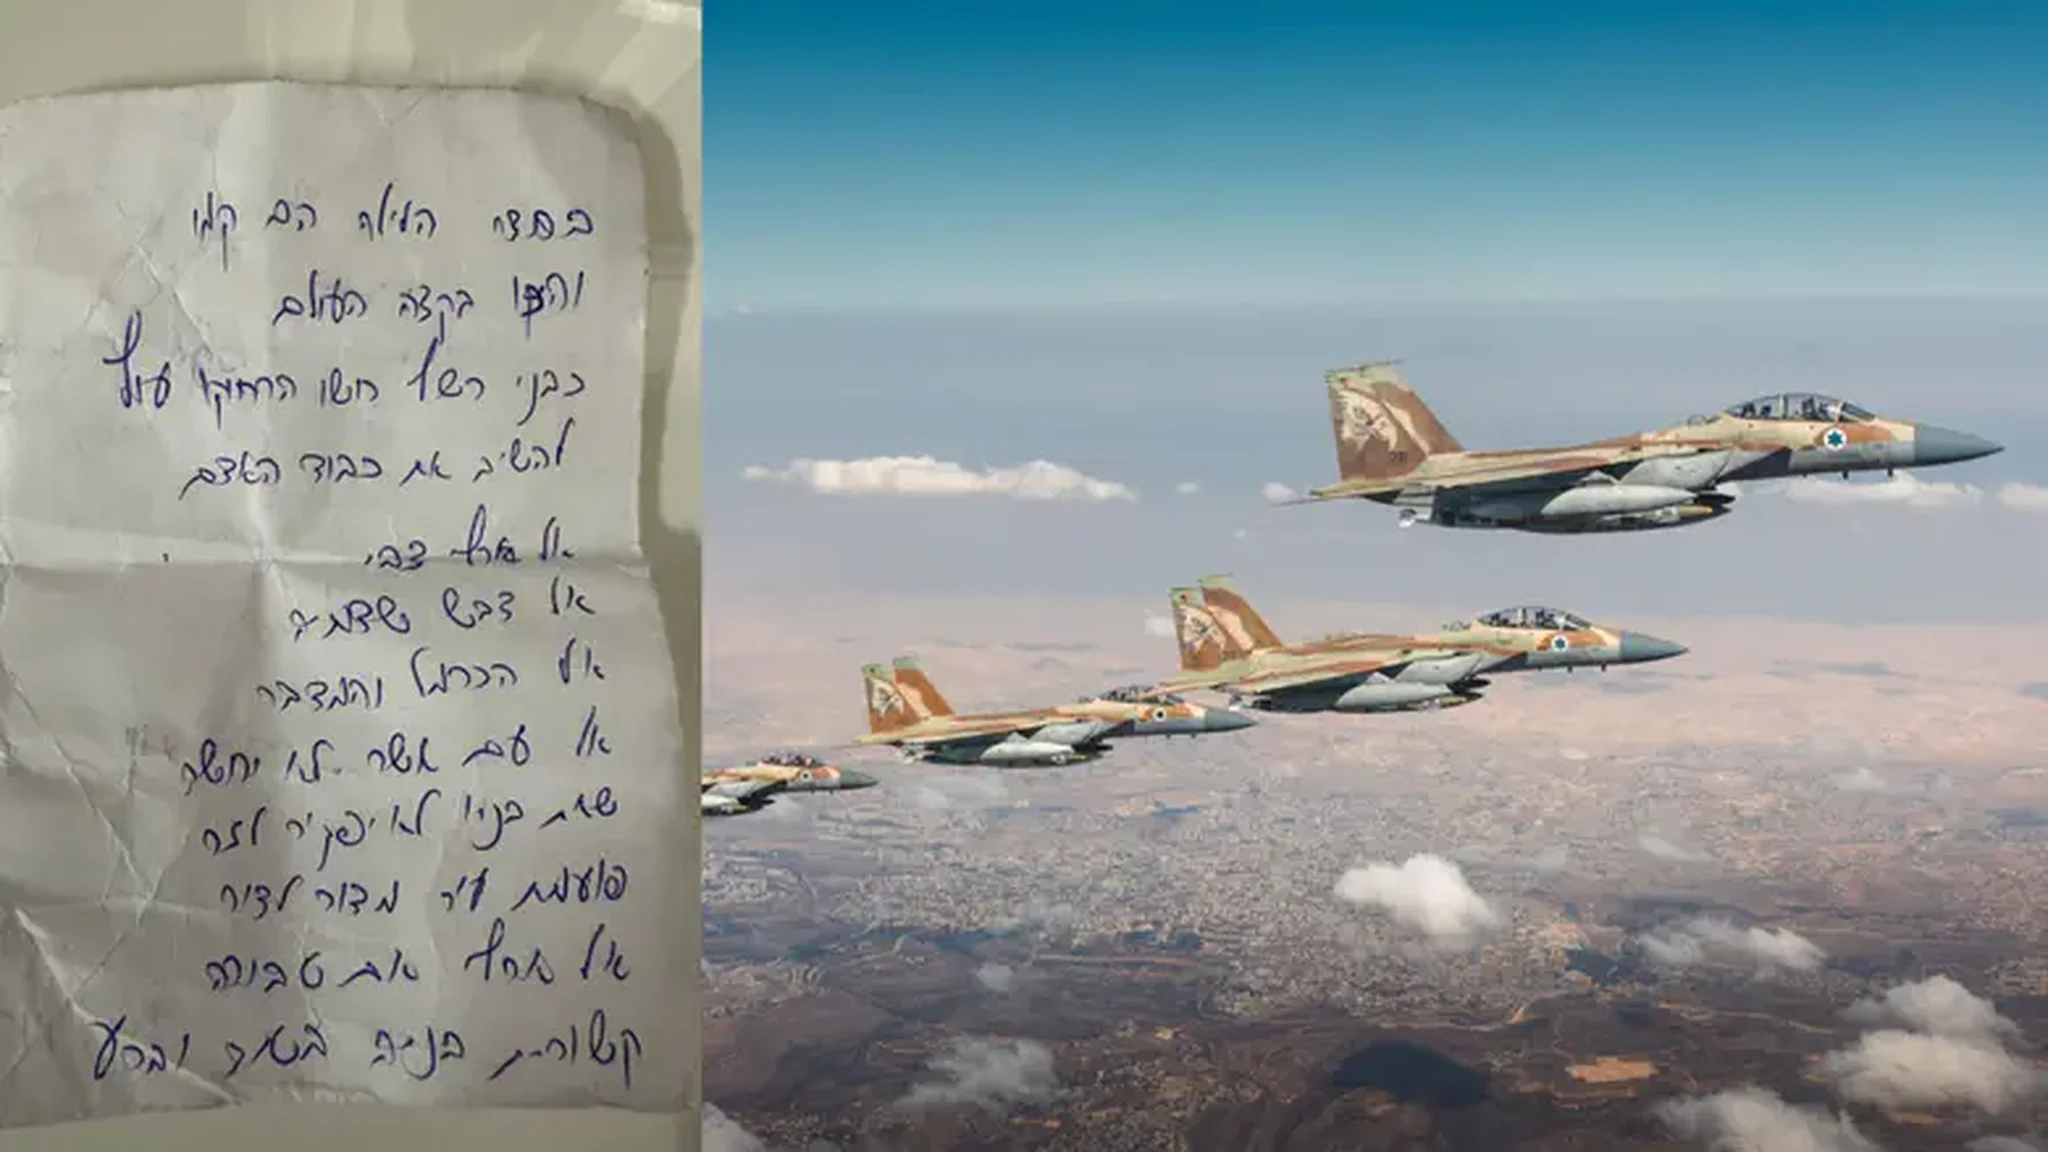 בחצי הלילה הם קמו
והכו בקצה העולם
כבני רשף חשו הרחיקו עוף
להשיב את כבוד האדם
אל ארץ צבי
אל דבש שדותיה
אל הכרמל והמדבר
אל עם אשר לא יחשה
שאת בניו לא יפקיר לזר
פועמת עיר מדור לדור
אל ארץ אם טבורה
קשורים בניה בטוב וברע